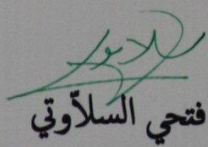 فتحي السلاّوتي